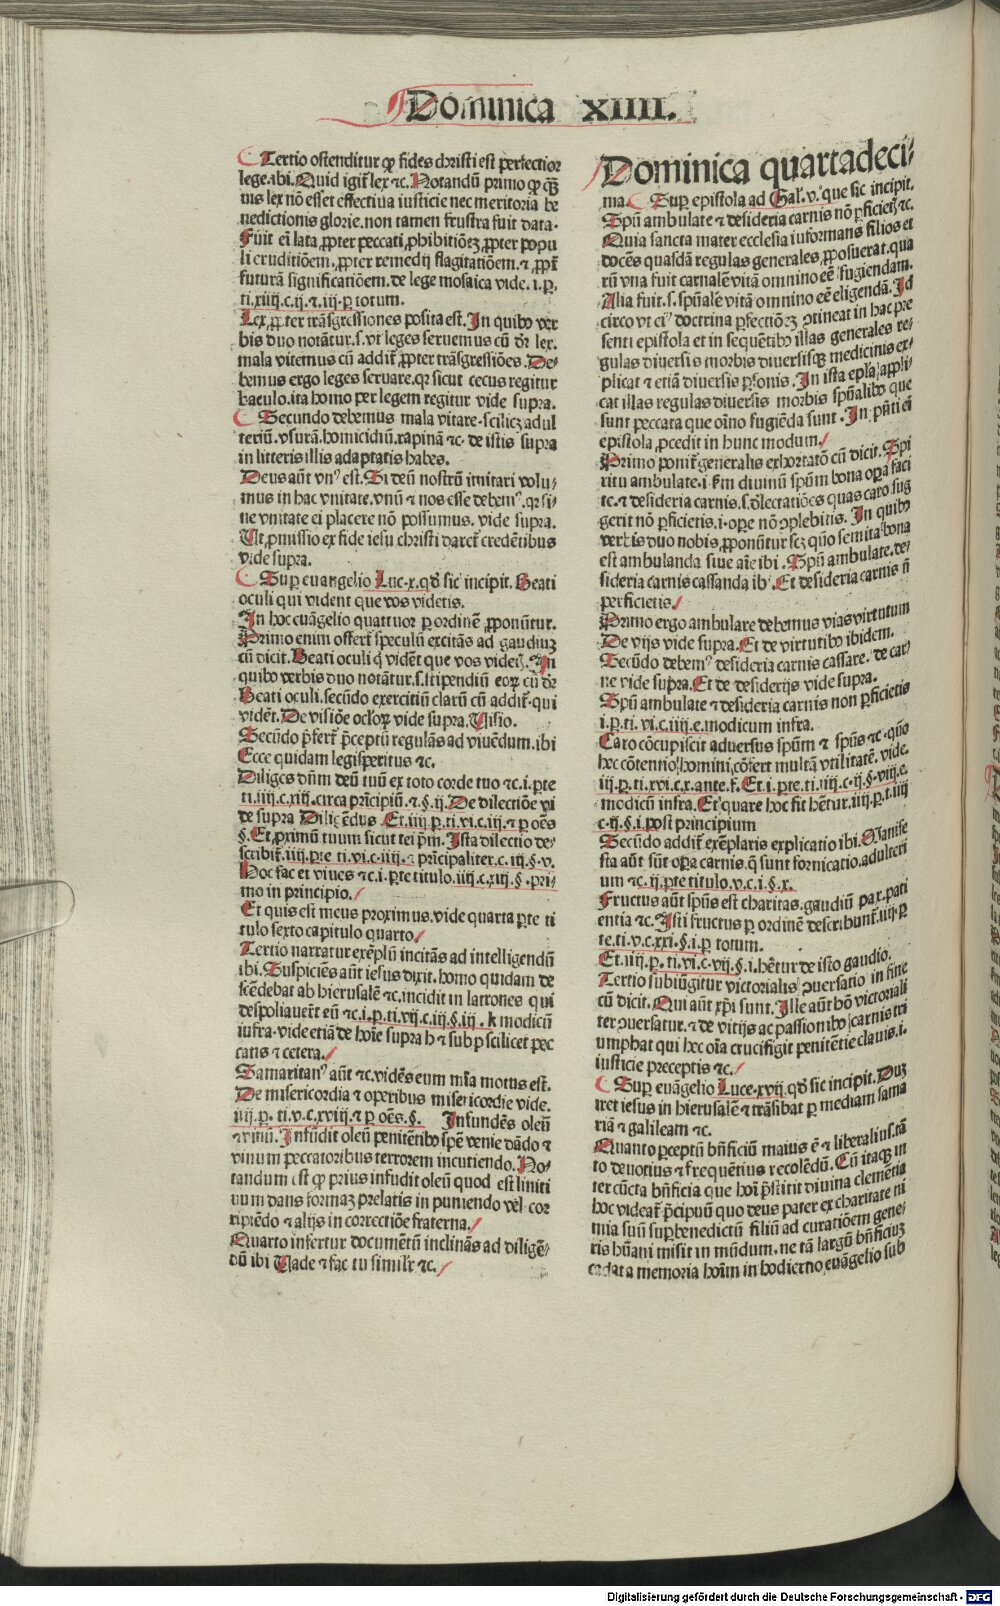 Dominica XIIII.
Tertio ostenditur ꝙ fides christi est perfectior
lege.ibi.Quid igit̃ lex ⁊c. Notandũ primo ꝙ q̃ꝫ
uis lex nõ esset effectiua iusticie nec meritoria be
nedictionis glorie.non tamen frustra fuit data.
Fuit eĩ lata ꝓpter peccati ꝓhibitiõeꝫ ꝓpter popu
li eruditiõem.ꝓpter remedij flagitatiõem.⁊ ꝓpt̃
futurã significatiõem.de lege mosaica vide.i.p̱.
ti.xiiij.c.ij.⁊.iij.p̱ totum.
Lex ꝓpter trãsgressiones posita est.In quibꝰ ver
bis duo notãtur.s.vt leges seruemus cũ dr̃ lex.
mala vitemus cũ addit̃ ꝓpter trãsgressiões.De-
bemus ergo leges seruare.qr sicut cecus regitur
baculo.ita homo per legem regitur vide supra.
Secundo debemus mala vitare.scilicꝫ adul
teriũ.vsurã.homicidiũ.rapinã ⁊c. de istis supra
in litteris illis adaptatis habes.
Deus aũt vnꝰ est.Si deũ nostrũ imitari volu-
mus in hac vnitate.vnũ ⁊ nos esse debemꝰ.qr si-
ne vnitate ei placere nõ possumus. vide supra.
Ut ꝓmissio ex fide iesu christi daret̃ credẽtibus
vide supra.
Sup̱ euangelio Luc.x.qd̃ sic incipit.Beati
oculi qui vident que vos videtis.
In hoc euãgelio quattuor p̱ ordinẽ ꝓponũtur.
Primo enim offert̃ speculũ excitãs ad gaudiuꝫ
cũ dicit.Beati oculi q̃ vidẽt que vos videt̃.In
quibꝰ verbis duo notãtur.s.stipendiũ eoꝝ cũ dr̃
Beati oculi.secũdo exercitiũ clarũ cũ addit̃.qui
vidẽt.De visiõe ocl̓oꝝ vide supra.Uisio.
Secũdo p̃fert̃ p̃ceptũ regulãs ad viuẽdum.ibi
Ecce quidam legisperitus ⁊c.
Diliges dñm deũ tuũ ex toto corde tuo ⁊c.i.p̱te
ti.iiij.c.xiij.circa prĩcipiũ.⁊.§.ij.De dilectiõe vi
de supra Diligẽdus.Et.iiij.p̱.ti.vi.c.iij.⁊ p̱ oẽs
§.Et ꝓximũ tuum sicut tei p̃m.Ista dilectio de-
scribit̃.iiij.p̱te ti.vi.c.iiij.⁊ prĩcipaliter.c.iij.§.v.
Hoc fac et viues ⁊c.i.p̱te titulo.iiij.c.xiij.§.pri-
mo in principio.
Et quis est meus proximus.vide quarta p̱te ti
tulo sexto capitulo quarto.
Tertio narratur exẽplũ incitãs ad intelligendũ
ibi.Suspiciẽs aũt iesus dixit.homo quidam de
scẽdebat ab hierusalẽ ⁊c.incidit in latrones qui
despoliauer̃t eũ ⁊c.i.p̱.ti.vij.c.iij.§.iij.k modicũ
iufra.vide etiã de hoĩe supra h ⁊ sub p scilicet pec
catis ⁊ cetera.
Samaritanꝰ aũt ⁊c.vidẽs eum mr̃ia motus est.
De misericordia ⁊ operibus misericordie vide.
iiij.p̱.ti.v.c.xviij.⁊ p̱ oẽs.§. Infundẽs oleũ
⁊ vinũ.Infũdit oleũ penitẽtibꝰ spẽ venie dãdo ⁊
vinum peccatoribus terrorem incutiendo.No-
tandum est ꝙ prius infudit oleũ quod est liniti
uum dans formaꝫ prelatis in puniendo vel cor
ripiẽdo ⁊ alijs in correctiõe fraterna.
Quarto infertur documẽtũ inclinãs ad diligẽ-
dũ ibi Uade ⁊ fac tu simil̓r ⁊c.
Dominica quartadeci-
ma. Sup̱ epistola ad Gal̓.v.que sic incipit.
Sp̃ũ ambulate ⁊ desideria carnis nõ p̱ficiet̃ ⁊c.
Quia sancta mater ecclesia iuformans filios et
docẽs quasdã regulas generales ꝓposuerat.qua
rũ vna fuit carnalẽ vitã omnino eẽ fugiendam.
Alia fuit.s.sp̃ualẽ vitã omnino eẽ eligendã.Id
circo vt eiꝰ doctrina p̱fectiõeꝫ ꝯtineat in hac pre
senti epistola et in sequẽtibꝰ illas generales re-
gulas diuersis morbis diuersisqꝫ medicinis ex-
plicat ⁊ etiã diuersis p̱sonis.In ista ep̃la appli
cat illas regulas diuersis morbis sp̃ualibꝰ que
sunt peccata que oĩno fugiẽda sunt.In p̃nti eĩ
epistola ꝓcedit in hunc modum.
Primo ponit̃ generalis exhortatõ cũ dicit.Spi
ritu ambulate.i.fm diuinũ sp̃um bona oꝑa faci
te.⁊ desideria carnis.s.dilectatiões quas caro sug
gerit nõ p̱ficietis.i.oꝑe nõ ꝯplebitis.In quibꝰ
verbis duo nobis ꝓponũtur scꝫ quo semita bona
est ambulanda siue aĩe ibi.Sp̃ũ ambulate.de-
sideria carnis cassanda ibi.Et desideria carnis ñ
perficietis.
Primo ergo ambulare debemus vias virtutum
De vijs vide supra.Et de virtutibꝰ ibidem.
Secũdo debemꝰ desideria carnis cassare. de car-
ne vide supra.Et de desiderijs vide supra.
Sp̃ũ ambulate ⁊ desideria carnis non p̱ficietis
i.p̱.ti.vi.c.iiij.e.modicum infra.
Caro cõcupiscit aduersus sp̃um ⁊ sp̃us ⁊c.quo
hec cõtentio homini cõfert multã vtilitatẽ.vide.
iij.p̱.ti.xvi.c.x.ante.f.Et.i.p̱te.ti.iiij.c.ij.§.viij.e.
modicũ infra.Et quare hoc fit hẽtur.iiij.p̱.t.iiij
c.ij.§.i.post principium
Secũdo addit̃ exẽplaris explicatio ibi.Manife
sta aũt sũt oꝑa carnis.q̃ sunt fornicatio.adulteri
um ⁊c.ij.p̱te titulo.v.c.i.§.x.
Fructus aũt sp̃us est charitas.gaudiũ pax.pati
entia ⁊c.Isti fructus p̱ ordinẽ describunt̃.iiij.p̱
te.ti.v.c.xxi.§.i.p̱ totum.
Et.iiij.p̱.ti.vi.c.vij.§.i.hẽtur de isto gaudio.
Tertio subiũgitur victorialis ꝯuersatio in fine
cũ dicit.Qui aũt xp̃i sunt.Ille aũt bõ victoriali
ter ꝯuersatur.⁊ de vitijs ac passionibꝰ carnis tri
umphat qui hec oĩa crucifigit penitẽtie clauis.i.
iusticie preceptis ⁊c.
Sup̱ euãgelio Luce.xvij.qd̃ sic incipit.Duꝫ
iret iesus in hierusalẽ ⁊ trãsibat p̱ mediam sama
riã ⁊ galileam ⁊c.
Quanto p̱ceptũ bñficiũ maius ẽ ⁊ liberalius.tã
to deuotius ⁊ frequẽtius recolẽdũ.Cũ itaqꝫ in
ter cũcta bñficia que hoĩ p̃stitit diuina clemẽtia
hoc videat̃ p̃cipuũ quo deus pater ex charitate ni
mia suũ suꝑbenedictũ filiũ ad curatiõem gene-
ris hũani misit in mũdum.ne tã largũ bñficiuꝫ
cadat a memoria hoĩm in hodierno euãgelio sub
Digitalisierung gefördert durch die Deutsche Forschungsgemeinschaft - DFG